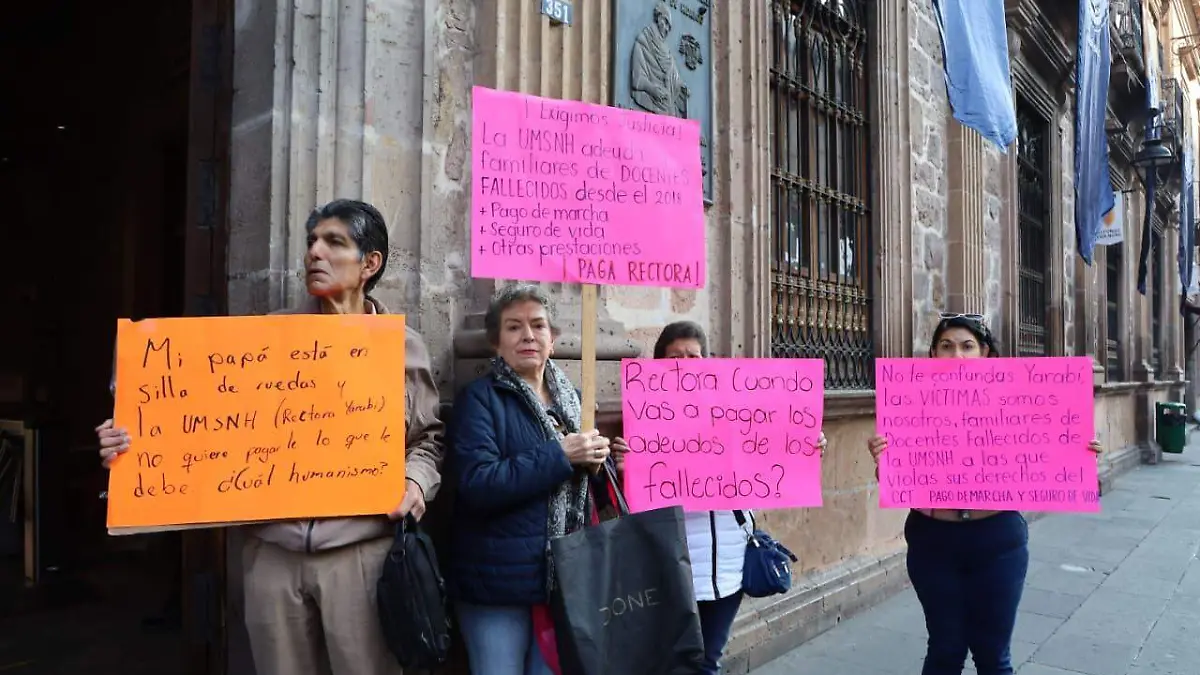 351
Mi papá está en
silla de ruedas y
la UMSNH (Rectora Yarabi)
no quiere pagarle lo que le
debe ¿Cuál humanismo?
¡Exigimos Justicia!
La UMSNH adeuda
familiares de DOCENTES
FALLECIDOS desde el 2018
+ Pago de marcha
+ Seguro de vida
+ Otras prestaciones
¡PAGA RECTORA!
Rectora Cuando
vas a pagar los
adeudos de los
fallecidos?
No te confundas Yarabi,
las VÍCTIMAS somos
nosotros, familiares de
Docentes Fallecidos de
la UMSNH a las que
violas sus derechos del
CCT PAGO DE MARCHA Y SEGURO DE VIDA